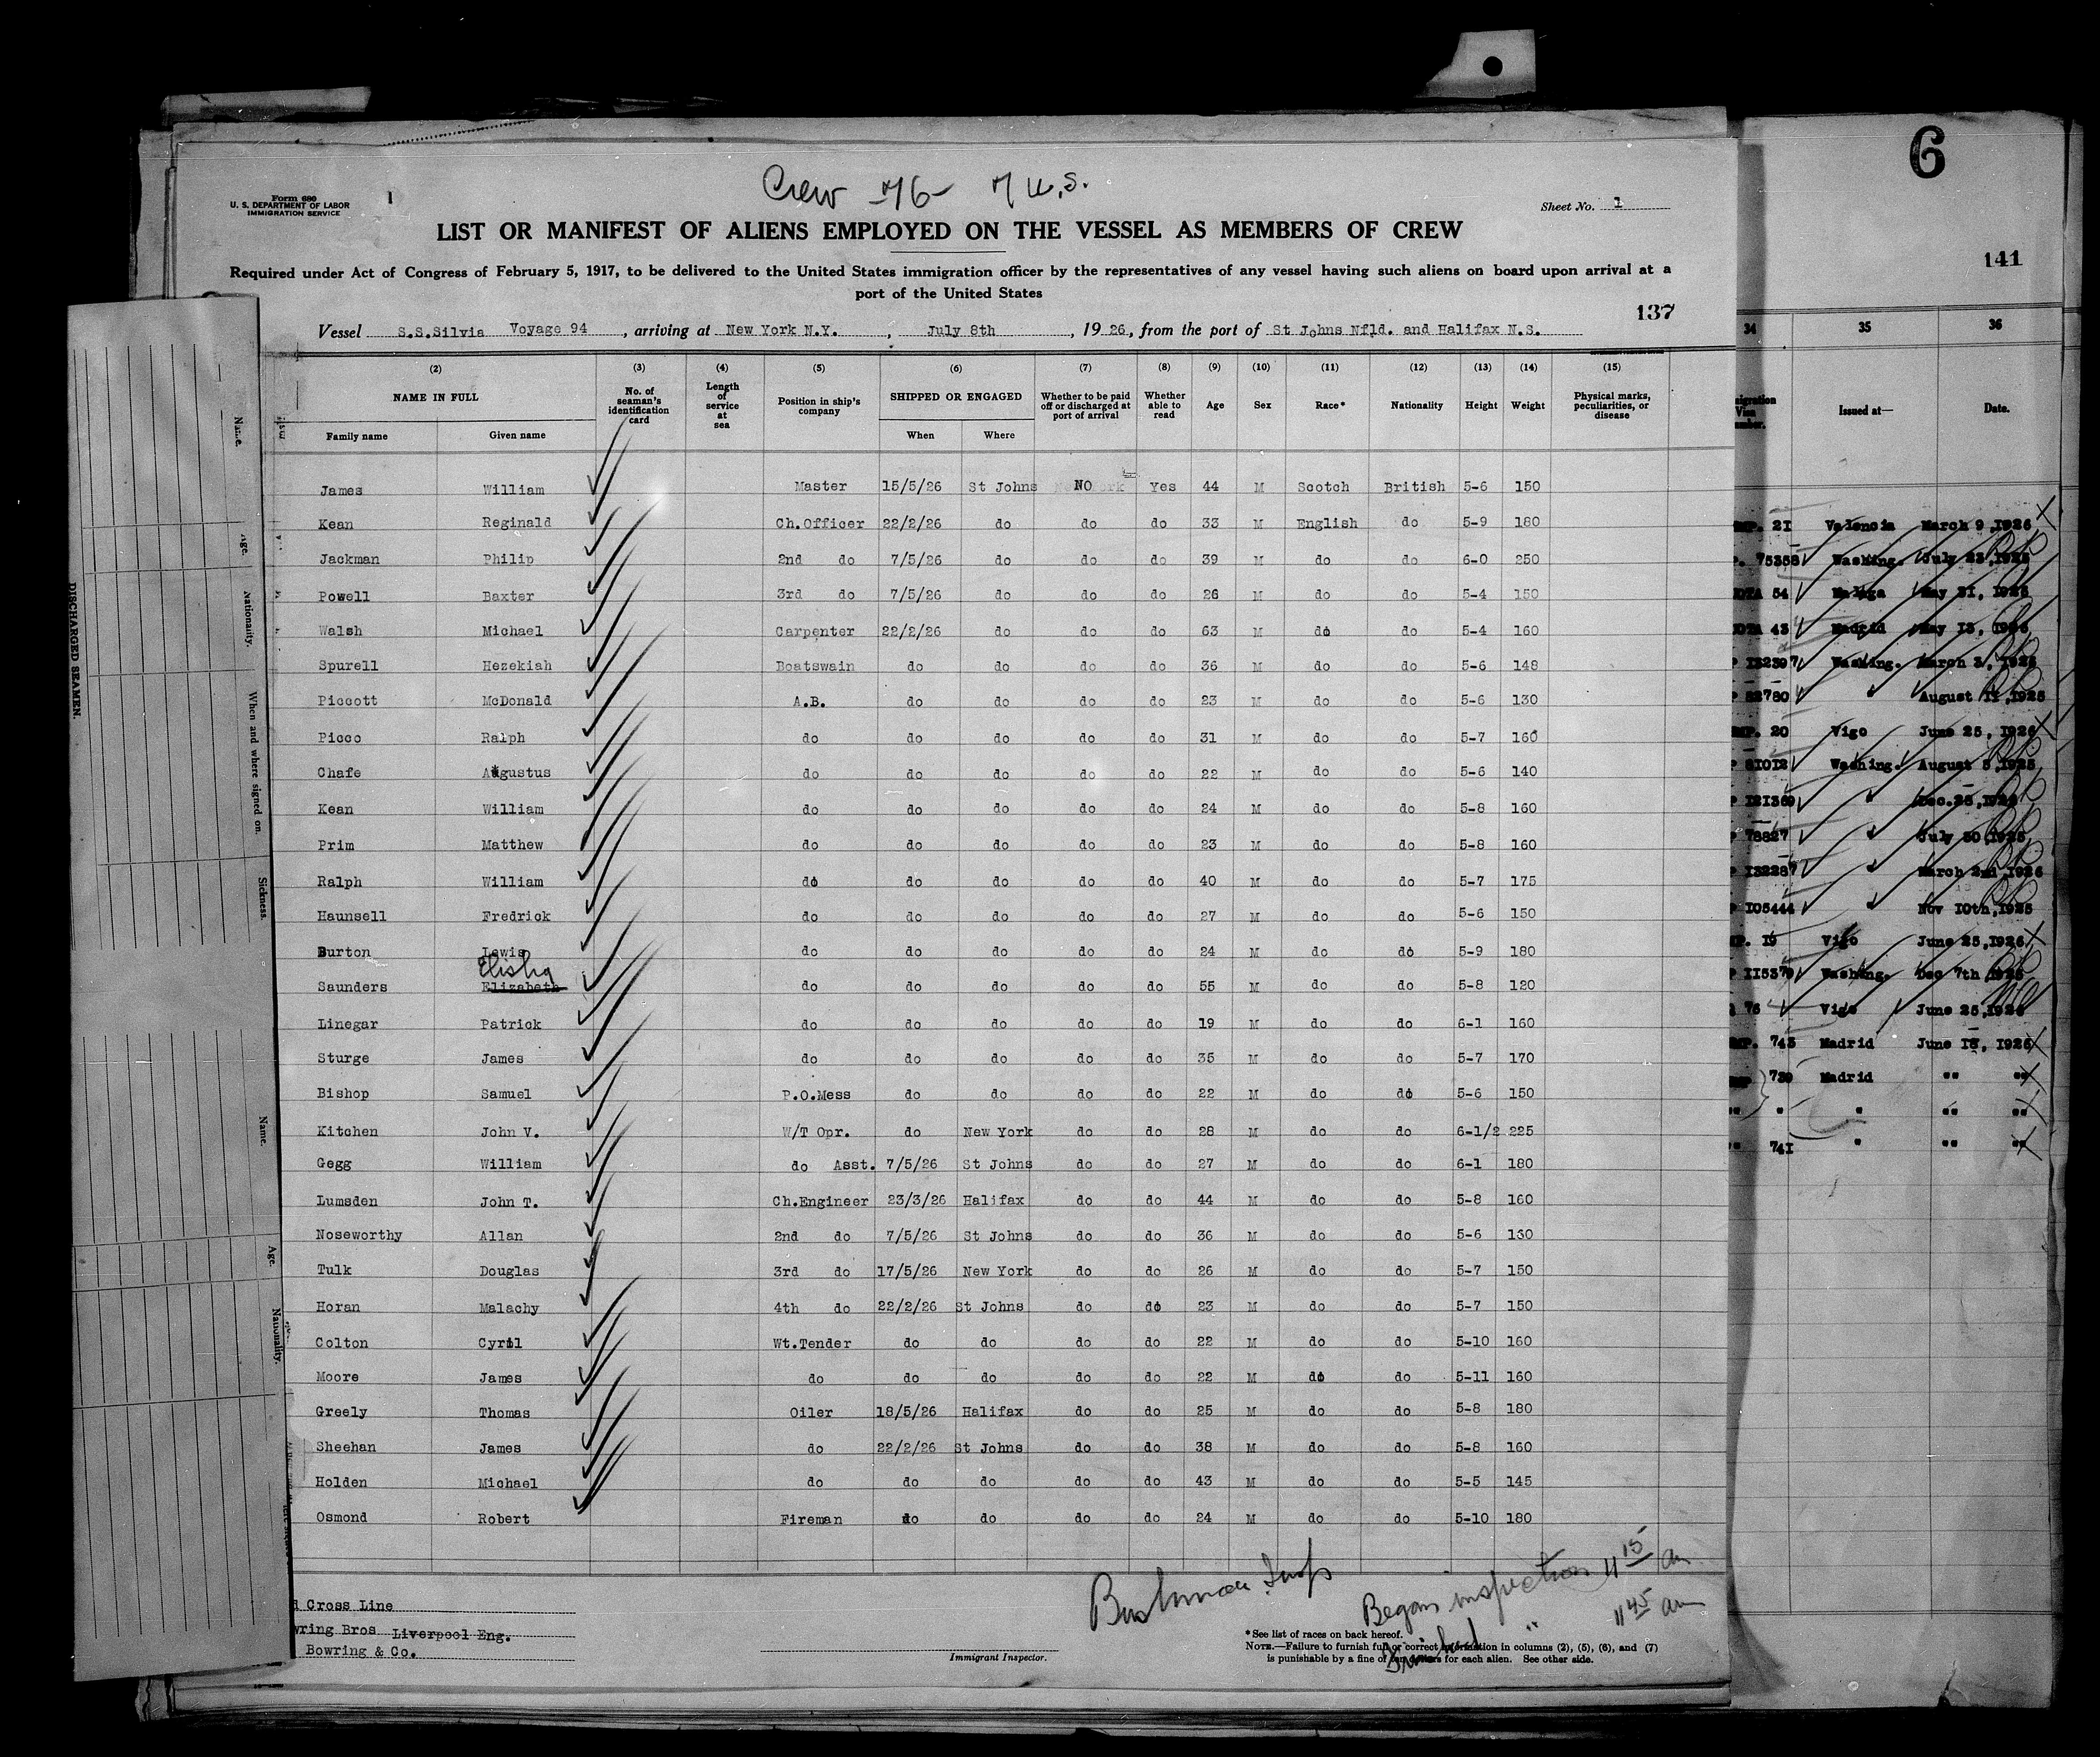 Crew 76 - 7 U.S.
Form 680
U. S. DEPARTMENT OF LABOR
IMMIGRATION SERVICE
1
Sheet No. 1
LIST OR MANIFEST OF ALIENS EMPLOYED ON THE VESSEL AS MEMBERS OF CREW
Required under Act of Congress of February 5, 1917, to be delivered to the United States immigration officer by the representatives of any vessel having such aliens on board upon arrival at a
port of the United States
137
Vessel S.S.Silvia Voyage 94, arriving at New York N.Y., July 8th, 1926, from the port of St Johns Nfld. and Halifax N.S.
(2) (3) (4) (5) (6) (7) (8) (9) (10) (11) (12) (13) (14) (15)
NAME IN FULL No. of seaman's identification card Length of service at sea Position in ship's company SHIPPED OR ENGAGED Whether to be paid off or discharged at port of arrival Whether able to read Age Sex Race* Nationality Height Weight Physical marks, peculiarities, or disease
Family name Given name When Where
James William Master 15/5/26 St Johns NO Yes 44 M Scotch British 5-6 150
Kean Reginald Ch.Officer 22/2/26 do do do 33 M English do 5-9 180
Jackman Philip 2nd do 7/5/26 do do do 39 M do do 6-0 250
Powell Baxter 3rd do 7/5/26 do do do 26 M do do 5-4 150
Walsh Michael Carpenter 22/2/26 do do do 63 M do do 5-4 160
Spurell Hezekiah Boatswain do do do do 36 M do do 5-6 148
Piccott McDonald A.B. do do do do 23 M do do 5-6 130
Picco Ralph do do do do do 31 M do do 5-7 160
Chafe Augustus do do do do do 22 M do do 5-6 140
Kean William do do do do do 24 M do do 5-8 160
Prim Matthew do do do do do 23 M do do 5-8 160
Ralph William do do do do do 40 M do do 5-7 175
Haunsell Fredrick do do do do do 27 M do do 5-6 150
Burton Lewis do do do do do 24 M do do 5-9 180
Elisha
Saunders Elizabeth do do do do do 55 M do do 5-8 120
Linegar Patrick do do do do do 19 M do do 6-1 160
Sturge James do do do do do 35 M do do 5-7 170
Bishop Samuel P.O.Mess do do do do 22 M do do 5-6 150
Kitchen John V. W/T Opr. do New York do do 28 M do do 6-1/2 225
Gegg William do Asst. 7/5/26 St Johns do do 27 M do do 6-1 180
Lumsden John T. Ch.Engineer 23/3/26 Halifax do do 44 M do do 5-8 160
Noseworthy Allan 2nd do 7/5/26 St Johns do do 36 M do do 5-6 130
Tulk Douglas 3rd do 17/5/26 New York do do 26 M do do 5-7 150
Horan Malachy 4th do 22/2/26 St Johns do do 23 M do do 5-7 150
Colton Cyril Wt.Tender do do do do 22 M do do 5-10 160
Moore James do do do do do 22 M do do 5-11 160
Greely Thomas Oiler 18/5/26 Halifax do do 25 M do do 5-8 180
Sheehan James do 22/2/26 St Johns do do 38 M do do 5-8 160
Holden Michael do do do do do 43 M do do 5-5 145
Osmond Robert Fireman do do do do 24 M do do 5-10 180
Began inspection 11 15 am
Finished " 11 45 am
Cross Line
Bros Liverpool Eng.
Bowring & Co.
Immigrant Inspector.
*See list of races on back hereof.
NOTE.—Failure to furnish full or correct information in columns (2), (5), (6), and (7)
is punishable by a fine of ten dollars for each alien. See other side.
DISCHARGED SEAMEN.
Name.
Age.
Nationality.
When and where signed on.
Sickness.
Name.
Age.
Nationality.
6
141
34 35 36
Issued at— Date.
21 Valencia March 9, 1926
75358 Washing. July 23, 1925
54 Malaga May 31, 1926
43 Madrid May 13, 1926
132397 Washing. March 3, 1926
82780 August 11, 1925
20 Vigo June 25, 1926
81012 Washing. August 5, 1925
121369 Dec. 26, 1925
78827 July 30, 1925
132287 March 2nd, 1926
105444 Nov 10th, 1925
19 Vigo June 25, 1926
115379 Washing. Dec 7th, 1925
76 Vigo June 25, 1926
743 Madrid June 18, 1926
739 Madrid " "
" " " "
741 " " "